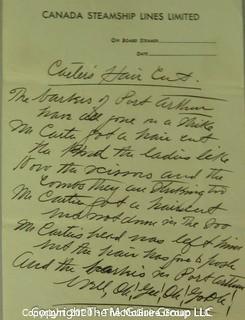 CANADA STEAMSHIP LINES LIMITED
ON BOARD STEAMER
DATE
Carter's Hair Cut.
The barbers of Port Arthur
have all gone on a strike
Mr Carter got a hair cut
the kind the ladies like
Now the scissors and the
combs they are striking too
Mr Carter got a haircut
and not down in the Soo
Mr Carters head was left
but the hair was
And the barbers in Port Arthur
Well, Oh! Gee, Oh! Gosh!
Copyright 2020 - The McGuire Group LLC